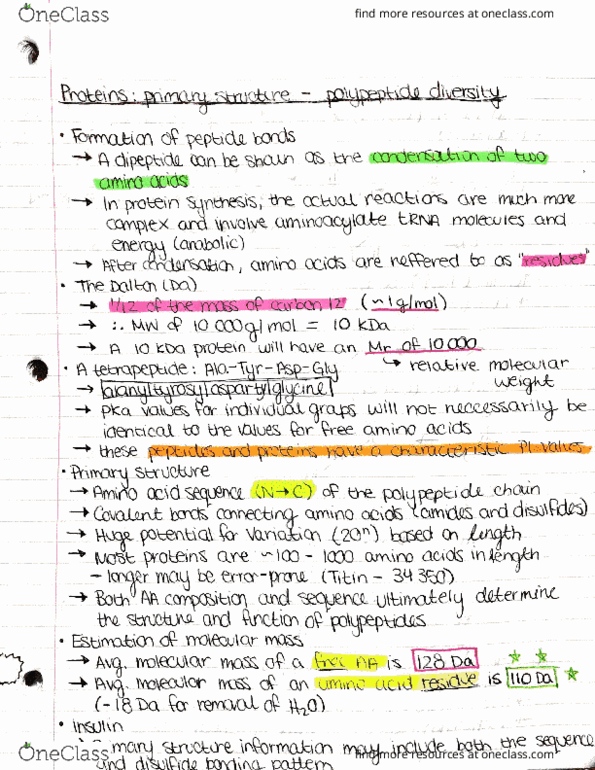 OneClass
find more resources at oneclass.com
Proteins: primary structure - polypeptide diversity
• Formation of peptide bonds
→ A dipeptide can be shown as the condensation of two
amino acids
→ In protein synthesis, the actual reactions are much more
complex and involve aminoacylate tRNA molecules and
energy (anabolic)
→ After condensation, amino acids are reffered to as "residues"
• The Dalton (Da)
→ 1/12 of the mass of carbon 12 (~1g/mol)
→ ∴ MW of 10 000g/mol = 10 kDa
→ A 10 kDa protein will have an Mr of 10 000
• A tetrapeptide: Ala-Tyr-Asp-Gly ↳ relative molecular
weight
→ alanyltyrosylaspartylglycine
→ pKa values for individual groups will not neccessarily be
identical to the values for free amino acids
→ these peptides and proteins have a characteristic PI values
• Primary structure
→ Amino acid sequence (N→C) of the polypeptide chain
→ Covalent bonds connecting amino acids (amides and disulfides)
→ Huge potential for variation (20ⁿ) based on length
→ Most proteins are ~100 - 1000 amino acids in length
- longer may be error-prone (Titin - 34 350)
→ Both AA composition and sequence ultimately determine
the structure and function of polypeptides
• Estimation of molecular mass
→ Avg. molecular mass of a free AA is 128 Da
→ Avg. molecular mass of an amino acid residue is 110 Da
(-18 Da for removal of H₂O)
• Insulin
mary structure information may include both the sequence
and disulfide bonding pattern
OneClass
find more resources at oneclass.com